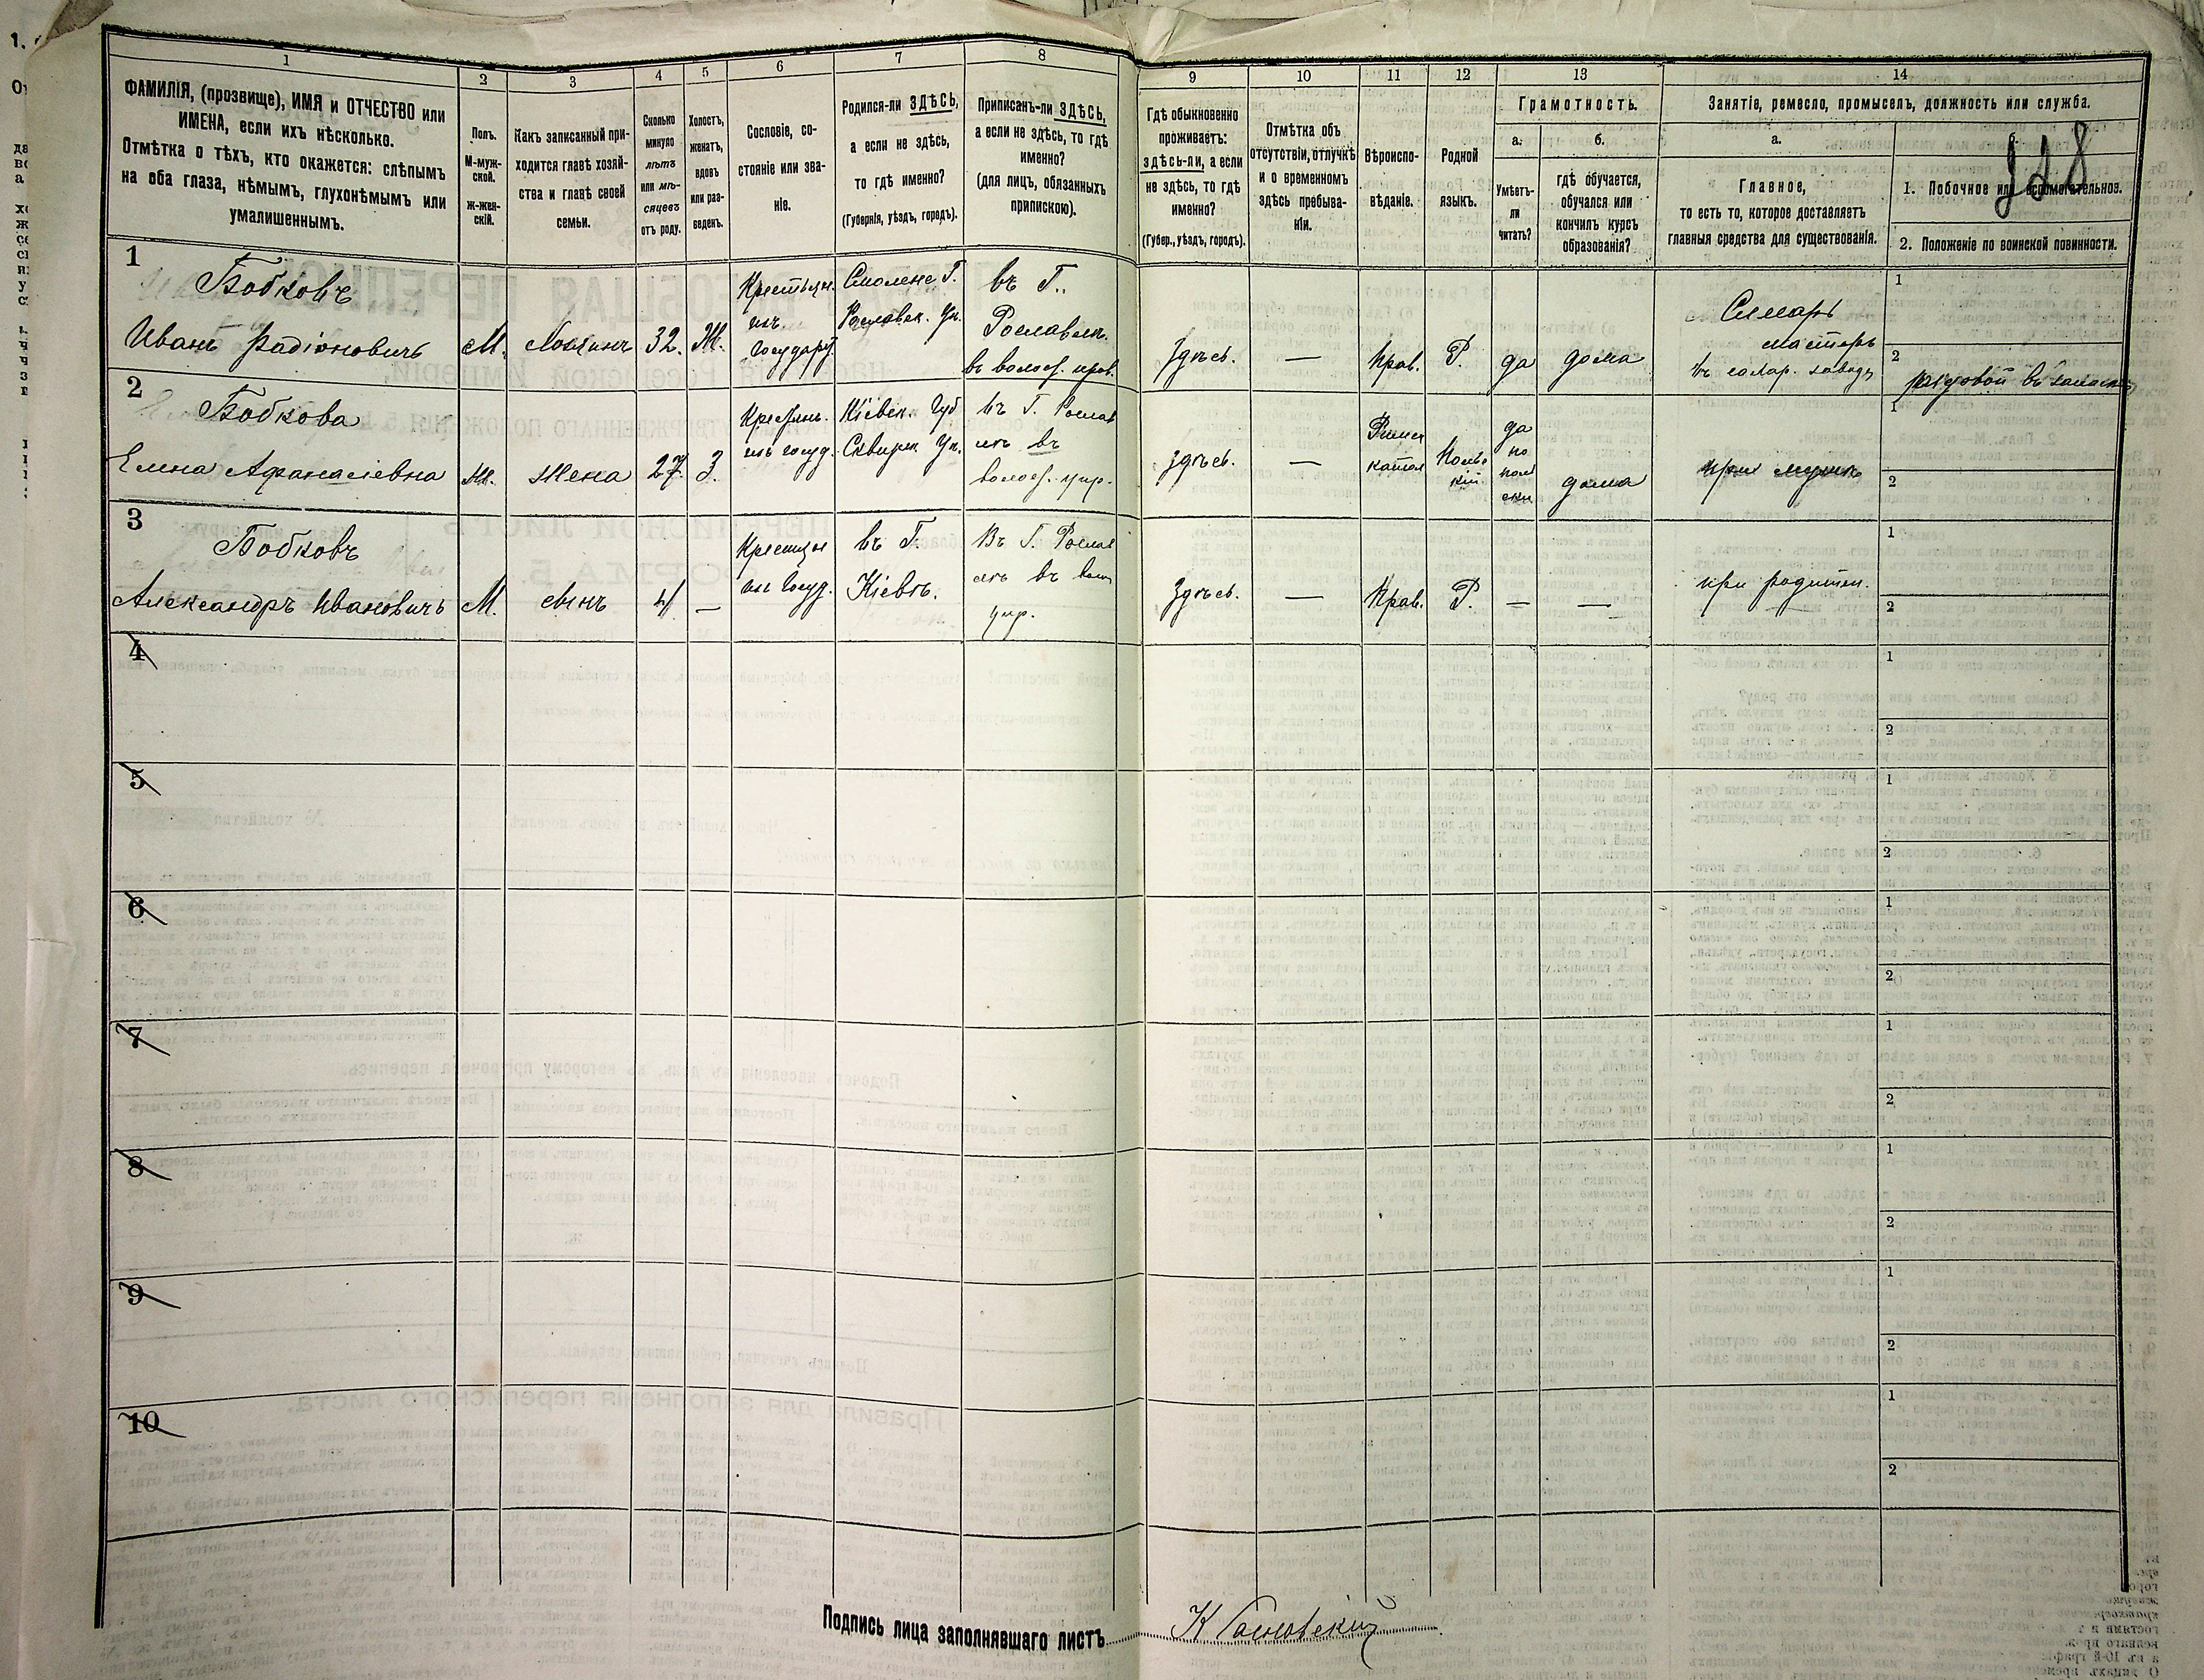 1 2 3 4 5 6 7 8 9 10 11 12 13 14
ФАМИЛІЯ, (прозвище), ИМЯ и ОТЧЕСТВО или
ИМЕНА, если ихъ нѣсколько.
Отмѣтка о тѣхъ, кто окажется: слѣпымъ
на оба глаза, нѣмымъ, глухонѣмымъ или
умалишеннымъ.
Полъ.
М-муж-
ской.
ж-жен-
скій.
Какъ записанный при-
ходится главѣ хозяй-
ства и главѣ своей
семьи.
Сколько
минуло
лѣтъ
или мѣ-
сяцевъ
отъ роду.
Холостъ,
женатъ,
вдовъ
или раз-
веденъ.
Сословіе, со-
стояніе или зва-
ніе.
Родился-ли ЗДѢСЬ,
а если не здѣсь,
то гдѣ именно?
(Губернія, уѣздъ, городъ).
Приписанъ-ли ЗДѢСЬ,
а если не здѣсь, то гдѣ
именно?
(для лицъ, обязанныхъ
припискою).
Гдѣ обыкновенно
проживаетъ:
здѣсь-ли, а если
не здѣсь, то гдѣ
именно?
(Губер., уѣздъ, городъ).
Отмѣтка объ
отсутствіи, отлучкѣ
и о временномъ
здѣсь пребыва-
ніи.
Вѣроиспо-
вѣданіе.
Родной
языкъ.
Грамотность.
а.
Умѣетъ-
ли
читать?
б.
гдѣ обучается,
обучался или
кончилъ курсъ
образованія?
Занятіе, ремесло, промыселъ, должность или служба.
а.
Главное,
то есть то, которое доставляетъ
главныя средства для существованія.
б.
1. Побочное или вспомогательное.
2. Положеніе по воинской повинности.
1
Бобковъ
Иванъ Радіоновичъ
М.
Хозяинъ
32.
Ж.
Крестьян.
изъ
государ.
Смоленс Г.
Рославск. Уѣ.
въ Г.
Рославлѣ.
въ волос. упр.
Здѣсь.
—
Прав.
Р.
да
дома
Слесарь
мастеръ
въ сахар. заводѣ
1
2
рядовой въ запасѣ
2
Бобкова
Елена Афанасіевна
Ж.
Жена
27.
З.
Кіевск. Губ
Сквирск. Уѣ.
въ Г. Рослав
лѣ въ
волос. упр.
Здѣсь.
—
Римск
катол
Польс
кій.
да
по
поль
ски
дома
при мужѣ
1
2
3
Бобковъ
Александръ Ивановичъ
М.
сынъ
4
—
изъ госуд.
въ Г.
Кіевѣ.
Въ Г. Рослав
лѣ въ вол
упр.
Здѣсь.
—
Прав.
Р.
—
—
при родител.
1
2
4
1
2
5
1
2
6
1
2
7
1
2
8
1
2
9
1
2
10
1
2
Подпись лица заполнявшаго листъ